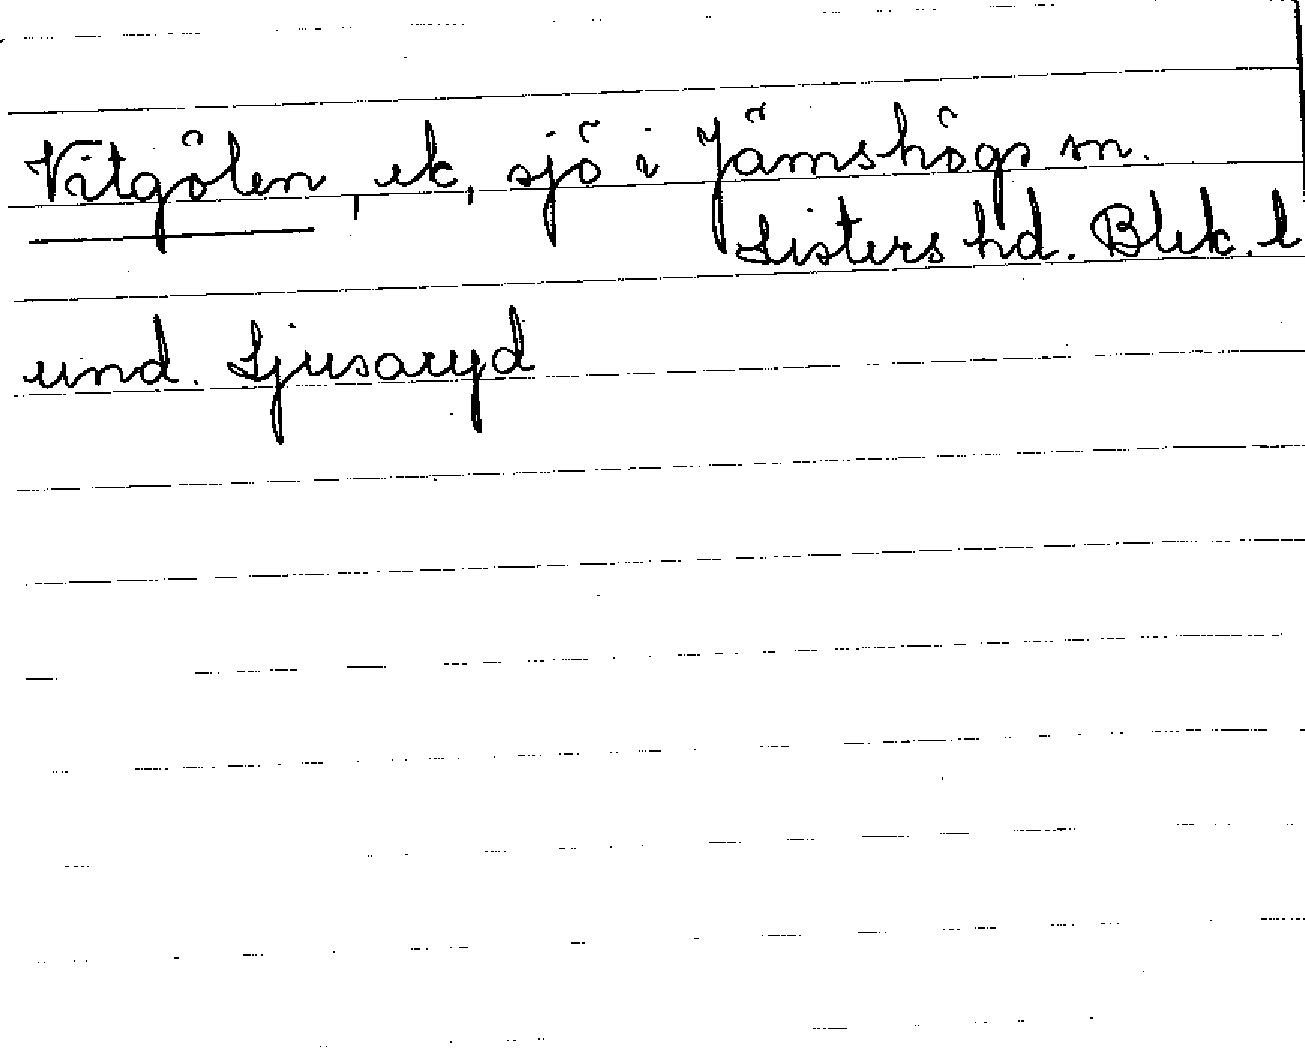 Vitgölen, ek, sjö i Jämshögs sn.
Listers hd. Blek. l
und. Ljusaryd